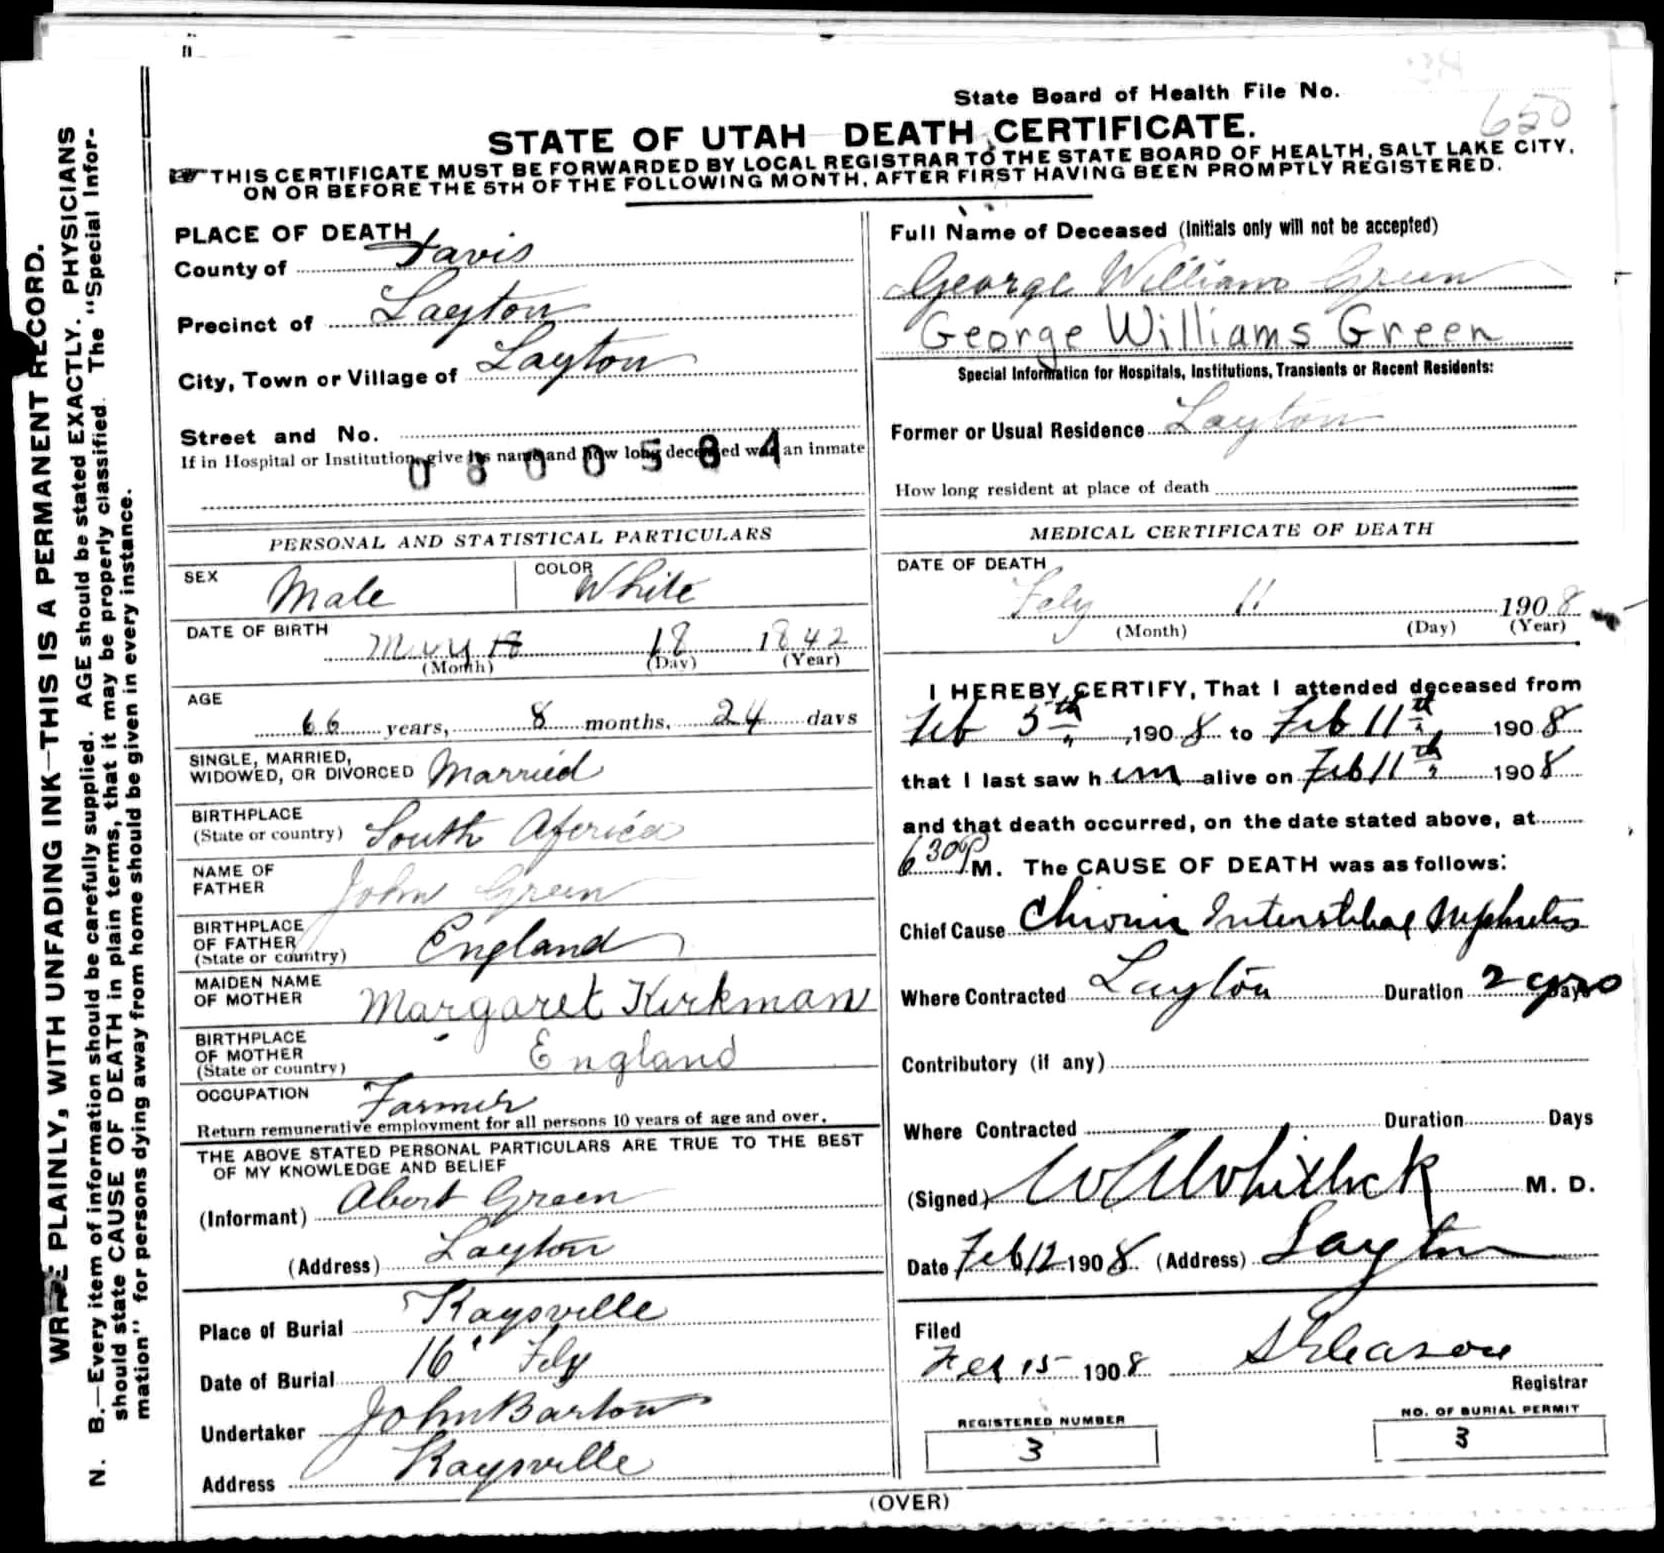 State Board of Health File No.
650
STATE OF UTAH DEATH CERTIFICATE.
THIS CERTIFICATE MUST BE FORWARDED BY LOCAL REGISTRAR TO THE STATE BOARD OF HEALTH, SALT LAKE CITY,
ON OR BEFORE THE 5TH OF THE FOLLOWING MONTH, AFTER FIRST HAVING BEEN PROMPTLY REGISTERED.
WRITE PLAINLY, WITH UNFADING INK—THIS IS A PERMANENT RECORD.
N. B.—Every item of information should be carefully supplied. AGE should be stated EXACTLY. PHYSICIANS
should state CAUSE OF DEATH in plain terms, that it may be properly classified. The "Special Infor-
mation" for persons dying away from home should be given in every instance.
PLACE OF DEATH
County of Davis
Precinct of Layton
City, Town or Village of Layton
Street and No.
If in Hospital or Institution, give its name and how long deceased was an inmate
PERSONAL AND STATISTICAL PARTICULARS
SEX Male COLOR White
DATE OF BIRTH May 18 18 1842
(Month) (Day) (Year)
AGE
66 years, 8 months, 24 days
SINGLE, MARRIED,
WIDOWED, OR DIVORCED Married
BIRTHPLACE
(State or country) South Africa
NAME OF
FATHER John Green
BIRTHPLACE
OF FATHER
(State or country) England
MAIDEN NAME
OF MOTHER Margaret Kirkman
BIRTHPLACE
OF MOTHER
(State or country) England
OCCUPATION Farmer
Return remunerative employment for all persons 10 years of age and over.
THE ABOVE STATED PERSONAL PARTICULARS ARE TRUE TO THE BEST
OF MY KNOWLEDGE AND BELIEF
(Informant) Abert Green
(Address) Layton
Place of Burial Kaysville
Date of Burial 16" Feby
Undertaker John Barton
Address Kaysville
Full Name of Deceased (Initials only will not be accepted)
George Williams Green
George Williams Green
Special Information for Hospitals, Institutions, Transients or Recent Residents:
Former or Usual Residence Layton
How long resident at place of death
MEDICAL CERTIFICATE OF DEATH
DATE OF DEATH
Feby 11 1908
(Month) (Day) (Year)
I HEREBY CERTIFY, That I attended deceased from
Feb 5th, 1908 to Feb 11th, 1908
that I last saw him alive on Feb 11th, 1908
and that death occurred, on the date stated above, at
630 P M. The CAUSE OF DEATH was as follows:
Chief Cause Chronic Interstitial Nephritis
Where Contracted Layton Duration 2 yrs Days
Contributory (if any)
Where Contracted Duration Days
(Signed) Whitlock M. D.
Date Feb 12 1908 (Address) Layton
Filed
Feb 15 1908 Gleason
Registrar
REGISTERED NUMBER
3
NO. OF BURIAL PERMIT
3
(OVER)